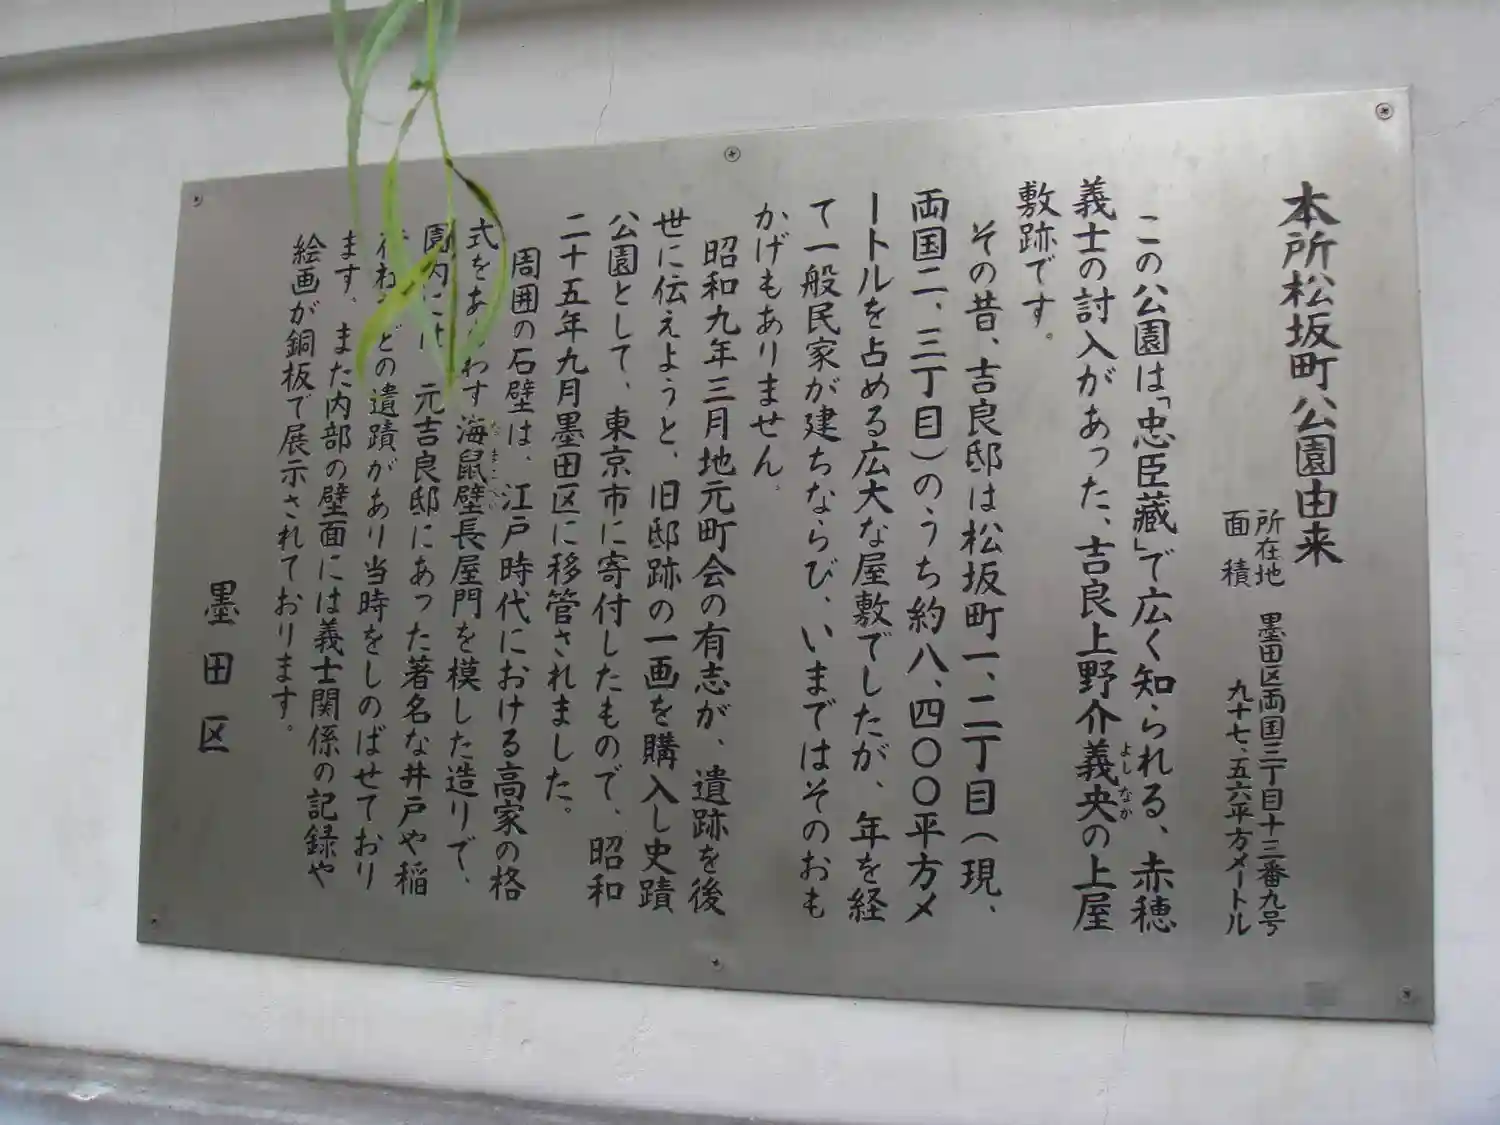 本所松坂町公園由来
所在地 墨田区両国三丁目十三番九号
面積 九十七、五六平方メートル
この公園は「忠臣蔵」で広く知られる、赤穂
義士の討入があった、吉良上野介義央の上屋
よしなか
敷跡です。
その昔、吉良邸は松坂町一、二丁目(現、
両国二、三丁目)のうち約八、四〇〇平方メ
ートルを占める広大な屋敷でしたが、年を経
て一般民家が建ちならび、いまではそのおも
かげもありません。
昭和九年三月地元町会の有志が、遺跡を後
世に伝えようと、旧邸跡の一画を購入し史蹟
公園として、東京市に寄付したもので、昭和
二十五年九月墨田区に移管されました。
周囲の石壁は、江戸時代における高家の格
式をあ わす海鼠壁長屋門を模した造りで、
園内には 元吉良邸にあった著名な井戸や稲
どの遺蹟があり当時をしのばせており
ます、また内部の壁面には義士関係の記録や
絵画が銅板で展示されております。
墨田区